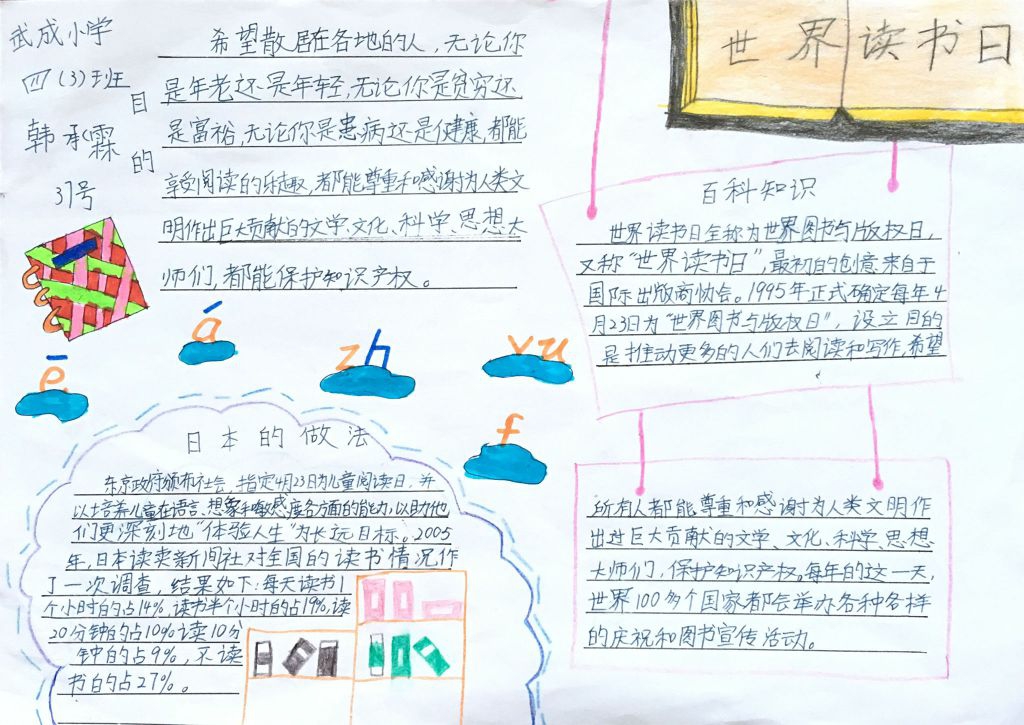 武成小学
四(3)班
韩承霖
37号
目的
希望散居在各地的人，无论你
是年老还是年轻，无论你是贫穷还
是富裕，无论你是患病还是健康，都能
享受阅读的乐趣，都能尊重和感谢为人类文
明作出巨大贡献的文学、文化、科学、思想大
师们，都能保护知识产权。
世界读书日
百科知识
世界读书日全称为世界图书与版权日，
又称“世界读书日”，最初的创意来自于
国际出版商协会。1995年正式确定每年4
月23日为“世界图书与版权日”，设立目的
是推动更多的人们去阅读和写作，希望
所有人都能尊重和感谢为人类文明作
出过巨大贡献的文学、文化、科学、思想
大师们，保护知识产权。每年的这一天，
世界100多个国家都会举办各种各样
的庆祝和图书宣传活动。
ē
á
zh
yu
f
日本的做法
东京政府颁布社会，指定4月23日为儿童阅读日，并
以培养儿童在语言、想象和敏感度各方面的能力，以助他
们更深刻地“体验人生”为长远目标。2005
年，日本读卖新闻社对全国的读书情况作
了一次调查，结果如下：每天读书1
个小时的占14%，读书半个小时的占19%，读
20分钟的占10%，读10分
钟的占9%，不读
书的占27%。